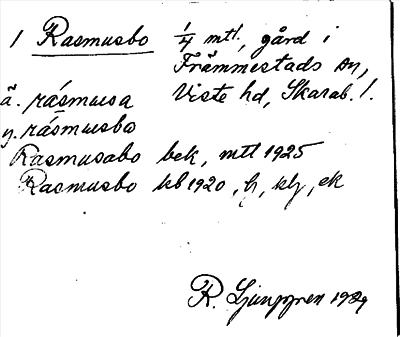 1 Rasmusbo 1/4 mtl., gård i
Främmestads sn,
ä. rásmusa Viste hd, Skarab. l.
y. rásmusbo
Rasmusabo bek, mtl 1925
Rasmusbo kb 1920, h, klj, ek
R. Ljunggren 1929